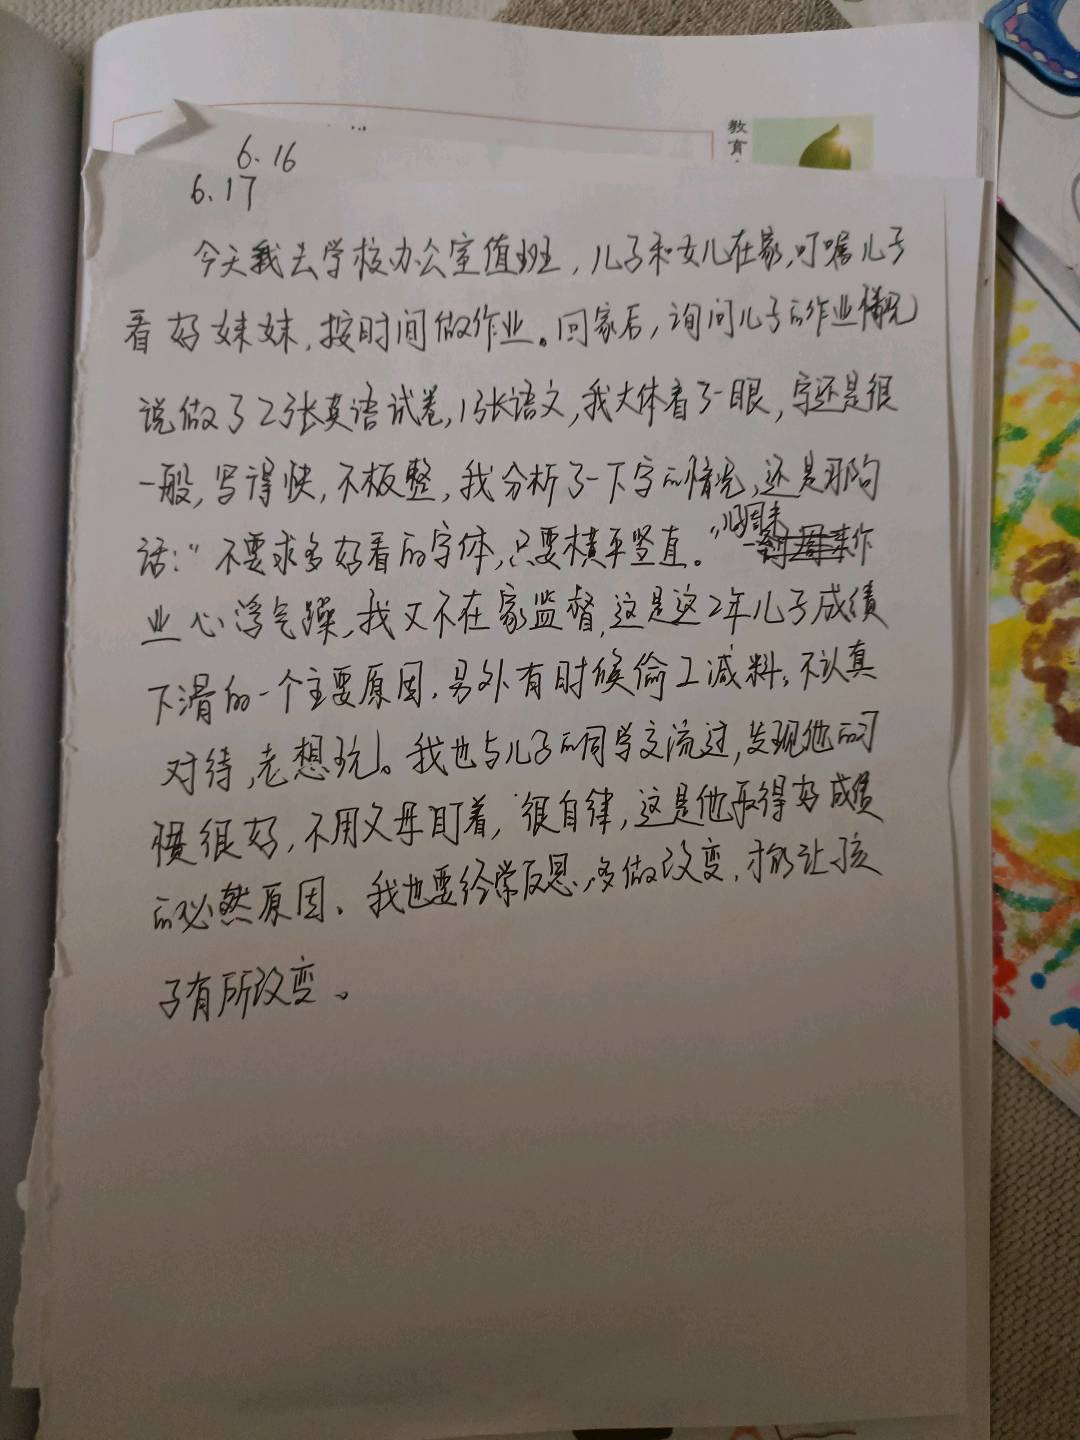 教育
6.16
6.17
今天我去学校办公室值班,儿子和女儿在家,叮嘱儿子
看好妹妹,按时间做作业。回家后,询问儿子的作业情况
说做了2张英语试卷,1张语文,我大体看了一眼,字还是很
一般,写得快,不板整,我分析了一下字的情况,还是那句
话:“不要求多好看的字体,只要横平竖直。”周末作
业心浮气躁,我又不在家监督,这是这2年儿子成绩
下滑的一个主要原因,另外有时候偷工减料,不认真
对待,老想玩。我也与儿子的同学交流过,发现他的习
惯很好,不用父母盯着,很自律,这是他取得好成绩
的必然原因。我也要经常反思,多做改变,才能让孩
子有所改变。